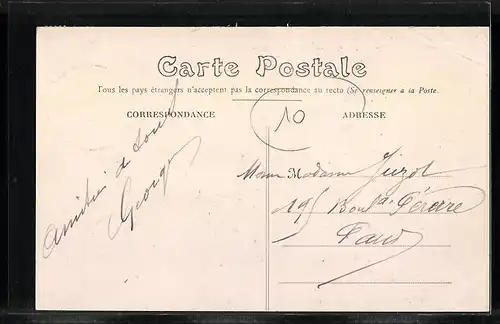 Carte Postale
Tous les pays étrangers n'acceptent pas la correspondance au recto (Se renseigner a la Poste.
CORRESPONDANCE
ADRESSE
10
Amitiés à tous
Georges
M Madame
195 Boul
Paris